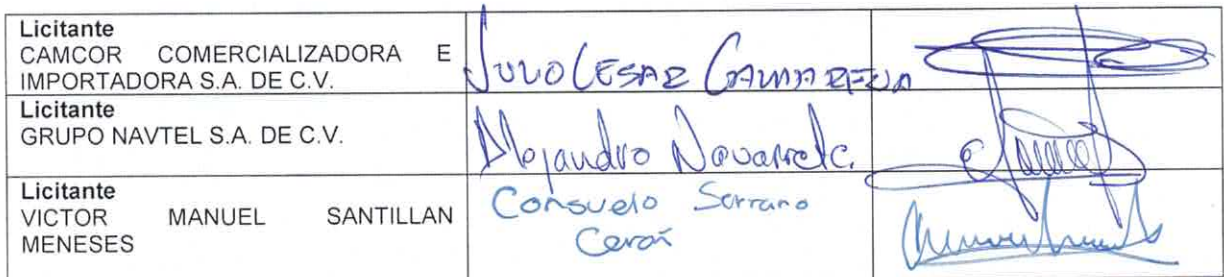 Licitante
CAMCOR COMERCIALIZADORA E
IMPORTADORA S.A. DE C.V.
JULIO CESAR CAMARENA
Licitante
GRUPO NAVTEL S.A. DE C.V.
Alejandro Navarrete.
Licitante
VICTOR MANUEL SANTILLAN
MENESES
Consuelo Serrano
Cerón